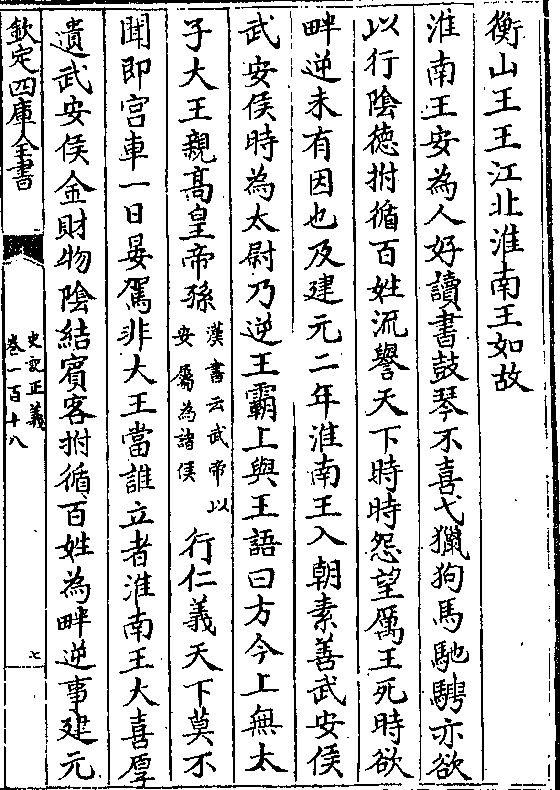 衡山王王江北淮南王如故
淮南王安為人好讀書鼓琴不喜弋獵狗馬馳騁亦欲
以行陰徳拊循百姓流譽天下時時怨望厲王死時欲
畔逆未有因也及建元二年淮南王入朝素善武安侯
武安侯時為太尉乃逆王霸上與王語曰方今上無太
子大王親髙皇帝孫漢書云武帝以安屬為諸侯行仁義天下莫不
聞即宫車一日晏駕非大王當誰立者淮南王大喜厚
遺武安侯金財物陰結賓客拊循百姓為畔逆事建元
欽定四庫全書
史記正義
卷一百十八
七